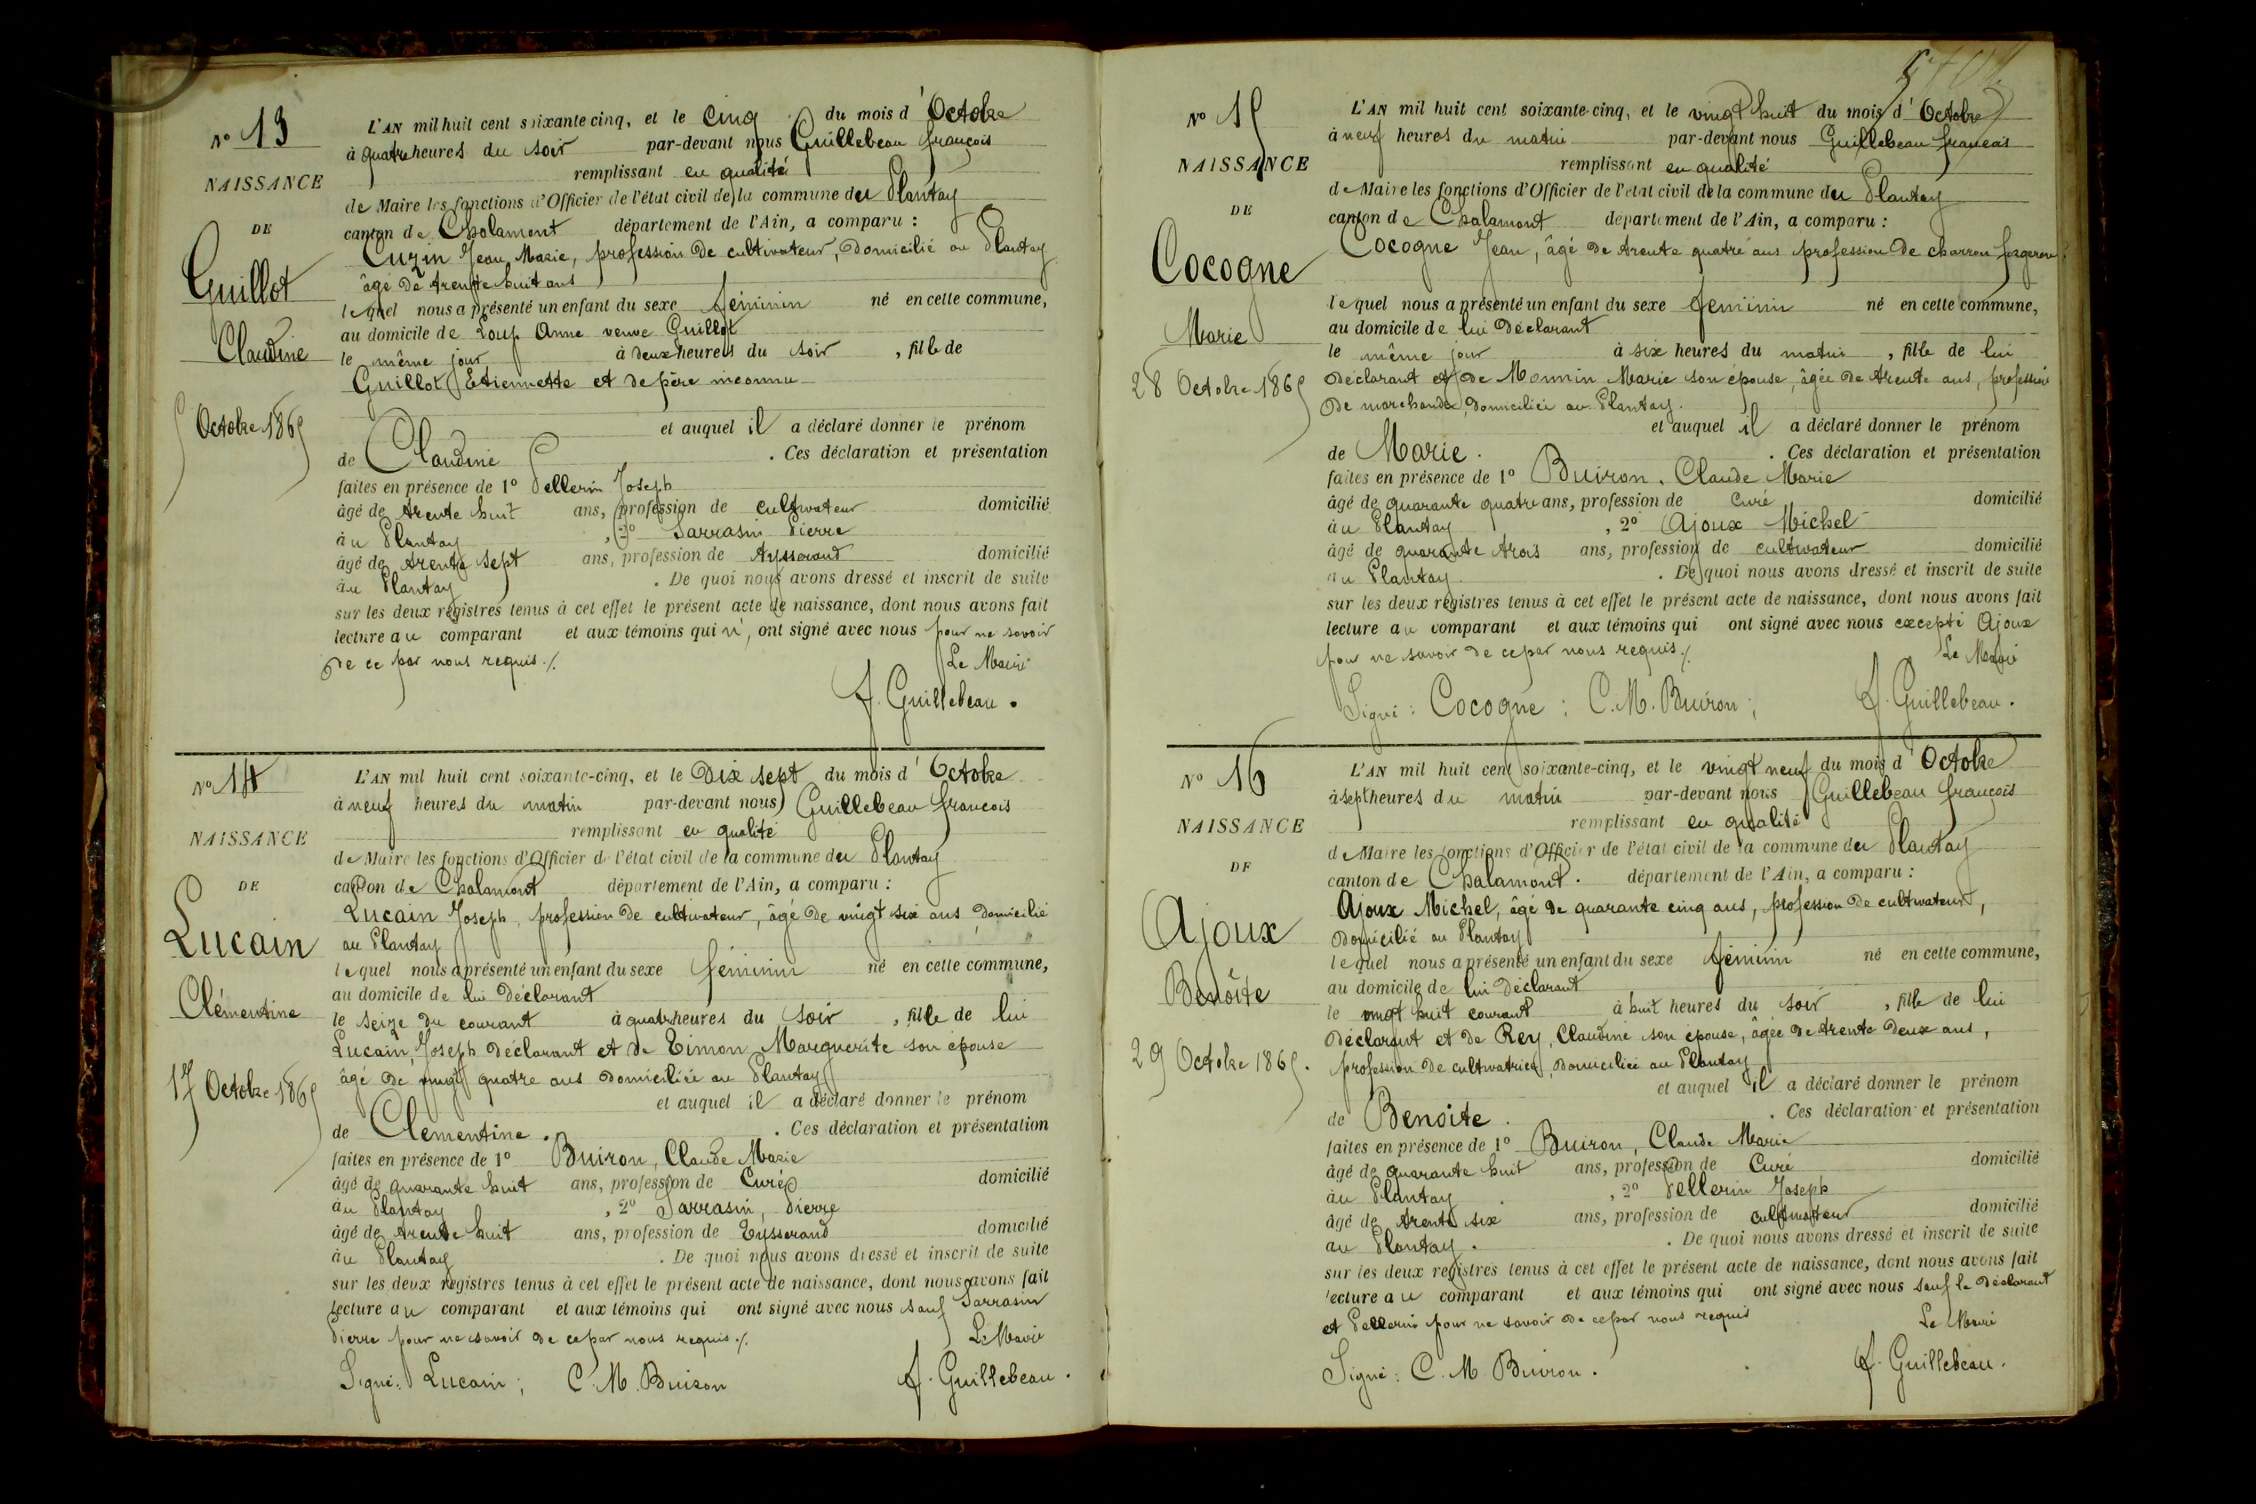 N° 13
NAISSANCE
DE
Guillot
Claudine
5 Octobre 1865
L'AN mil huit cent soixante cinq, et le Cinq du mois d'Octobre
à quatre heures du soir par-devant nous Guillebeau françois
remplissant en qualité
de Maire les fonctions d'Officier de l'état civil de la commune du Plantay
canton de Chalamont département de l'Ain, a comparu :
Cuzin Jean Marie, profession de cultivateur, domicilié au Plantay
âgé de trente huit ans
lequel nous a présenté un enfant du sexe féminin né en cette commune,
au domicile de Loup Anne veuve Guillot
le même jour à deux heures du soir, fille de
Guillot Etiennette et de père inconnu
et auquel il a déclaré donner le prénom
de Claudine . Ces déclaration et présentation
faites en présence de 1° Pellerin Joseph
âgé de trente huit ans, profession de cultivateur domicilié
au Plantay, 2° Sarrasin Pierre
âgé de trente sept ans, profession de tysserand domicilié
au Plantay . De quoi nous avons dressé et inscrit de suite
sur les deux registres tenus à cet effet le présent acte de naissance, dont nous avons fait
lecture au comparant et aux témoins qui n', ont signé avec nous pour ne savoir
de ce par nous requis ./.
Le Maire
f. Guillebeau .
N° 14
NAISSANCE
DE
Lucain
Clémentine
17 Octobre 1865
L'AN mil huit cent soixante-cinq, et le Dix sept du mois d'Octobre
à neuf heures du matin par-devant nous Guillebeau françois
remplissant en qualité
de Maire les fonctions d'Officier de l'état civil de la commune du Plantay
canton de Chalamont département de l'Ain, a comparu :
Lucain Joseph, profession de cultivateur, âgé de vingt six ans, domicilié
au Plantay
lequel nous a présenté un enfant du sexe féminin né en cette commune,
au domicile de lui déclarant
le seize du courant à quatre heures du soir, fille de lui
Lucain, Joseph déclarant et de Timon Marguerite son épouse
âgé de vingt quatre ans domiciliée au Plantay
et auquel il a déclaré donner le prénom
de Clementine . Ces déclaration et présentation
faites en présence de 1° Buiron, Claude Marie
âgé de quarante huit ans, profession de Curé domicilié
au Plantay, 2° Sarrasin, Pierre
âgé de trente huit ans, profession de Tysserand domicilié
au Plantay . De quoi nous avons dressé et inscrit de suite
sur les deux registres tenus à cet effet le présent acte de naissance, dont nous avons fait
lecture au comparant et aux témoins qui ont signé avec nous sauf Sarrasin
Pierre pour ne savoir de ce par nous requis ./.
Le Maire
Signé : Lucain ; C. M. Buiron
f. Guillebeau .
N° 15
NAISSANCE
DE
Cocogne
Marie
28 Octobre 1865
L'AN mil huit cent soixante-cinq, et le vingt huit du mois d'Octobre
à neuf heures du matin par-devant nous Guillebeau francois
remplissant en qualité
de Maire les fonctions d'Officier de l'état civil de la commune du Plantay
canton de Chalamont département de l'Ain, a comparu :
Cocogne Jean, âgé de trente quatre ans profession de charron forgeron
lequel nous a présenté un enfant du sexe feminin né en cette commune,
au domicile de lui déclarant
le même jour à six heures du matin, fille de lui
déclarant et de Monnin Marie son épouse, âgée de trente ans, profession
de marchande, domiciliée au Plantay.
et auquel il a déclaré donner le prénom
de Marie . Ces déclaration et présentation
faites en présence de 1° Buiron, Claude Marie
âgé de quarante quatre ans, profession de Curé domicilié
au Plantay, 2° Ajoux Michel
âgé de quarante trois ans, profession de cultivateur domicilié
au Plantay . De quoi nous avons dressé et inscrit de suite
sur les deux registres tenus à cet effet le présent acte de naissance, dont nous avons fait
lecture au comparant et aux témoins qui ont signé avec nous excepté Ajoux
pour ne savoir de ce par nous requis ./.
Le Maire
Signé : Cocogne : C. M. Buiron ;
f. Guillebeau .
N° 16
NAISSANCE
DE
Ajoux
Benoîte
29 Octobre 1865.
L'AN mil huit cent soixante-cinq, et le vingt neuf du mois d'Octobre
à sept heures du matin par-devant nous Guillebeau françois
remplissant en qualité
de Maire les fonctions d'Officier de l'état civil de la commune du Plantay
canton de Chalamont . département de l'Ain, a comparu :
Ajoux Michel, âgé de quarante cinq ans, profession de cultivateur,
domicilié au Plantay
lequel nous a présenté un enfant du sexe féminin né en cette commune,
au domicile de lui déclarant
le vingt huit courant à huit heures du soir, fille de lui
déclarant et de Rey, Claudine son épouse, âgée de trente deux ans,
profession de cultivatrice, domiciliée au Plantay
et auquel il a déclaré donner le prénom
de Benoite . Ces déclaration et présentation
faites en présence de 1° Buiron, Claude Marie
âgé de quarante huit ans, profession de Curé domicilié
au Plantay, 2° Pellerin Joseph
âgé de trente six ans, profession de cultivateur domicilié
au Plantay . De quoi nous avons dressé et inscrit de suite
sur les deux registres tenus à cet effet le présent acte de naissance, dont nous avons fait
lecture au comparant et aux témoins qui ont signé avec nous sauf le déclarant
et Pellerin pour ne savoir de ce par nous requis
Le Maire
Signé : C. M. Buiron .
f. Guillebeau .